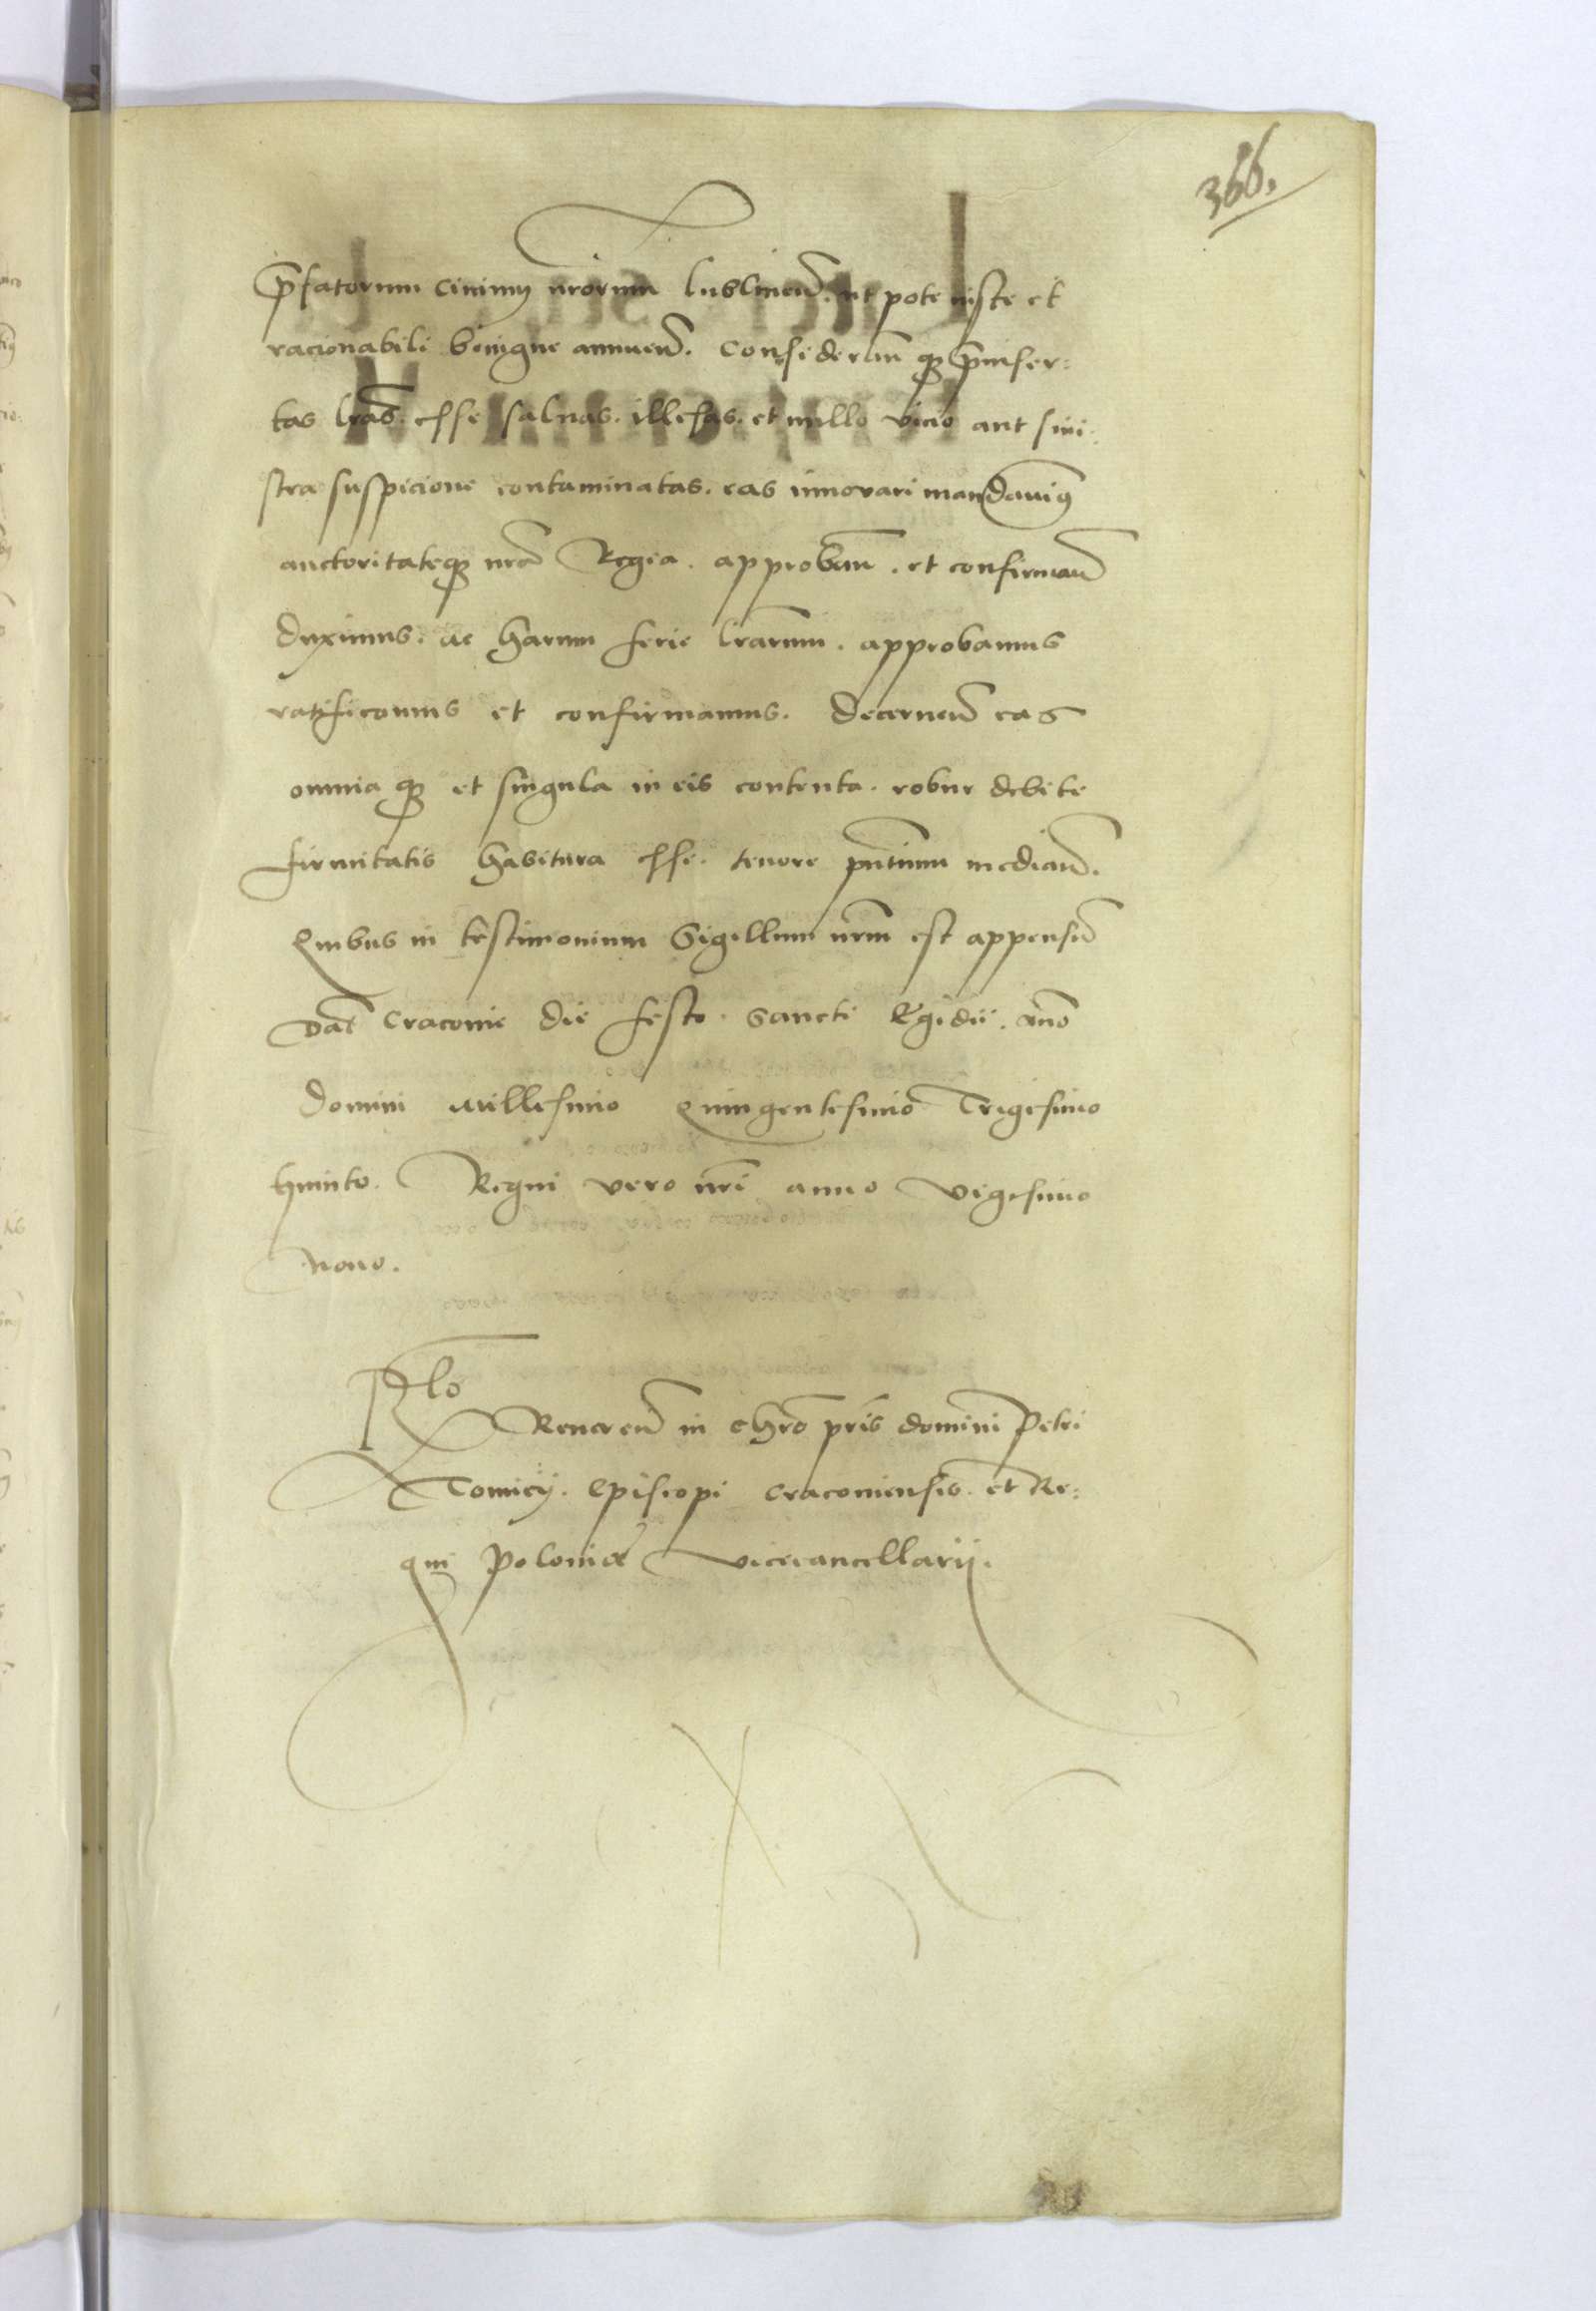 366.
p̄fatorum civiu(m) nrōrum lublinen̄. ut pote iuste et
racionabili benigne annuen̄. Considerān qꝫ p̄inser:
tas lrās. esse salvas. illesas. et nullo vicio aut sini:
stra suspicione contaminatas. eas innovari mandavimꝰ
auctoritateqꝫ nrā Regia. approban̄. et confirman̄
duximus. ac harum serie lrārum. approbamus
ratificamus et confirmamus. Decernen̄ eas
omnia qꝫ et singula in eis contenta. robur debite
firmitatis habitura esse. tenore pn̄tium median̄.
Quibus in testimonium Sigillum nrm̄ est appensū
Dat̄ Cracovie die festo. Sancti Egidii. an̄o
domini Millesimo Quingentesimo Trigesimo
huinto. Regni vero nrī anno vigesimo
nono.
Rlō
Reveren̄ in chrō pr̄is domini Petri
Tomicij. Episcopi Cracoviensis. et Re:
gni Poloniæ vicecancellarii.